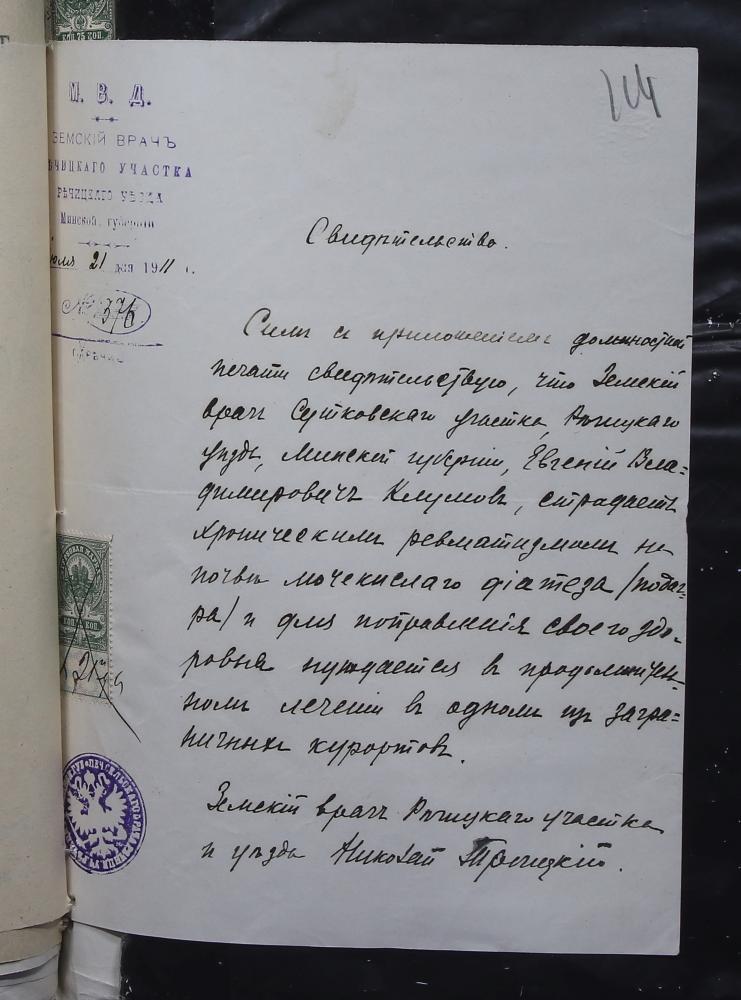 КОП. 75 КОП.
114
М. В. Д.
ЗЕМСКІЙ ВРАЧЪ
РѢЧИЦКАГО УЧАСТКА
РѢЧИЦКАГО УѢЗДА
Минской губерніи
Іюля 21 дня 1911 г.
№ 376
Г. РѢЧИЦА
Свидѣтельство.
Симъ съ приложеніемъ должностной
печати свидѣтельствую, что Земскій
врачъ Сутковскаго участка, Рѣчицкаго
уѣзда, Минской губерніи, Евгеній Вла=
димировичъ Клумовъ, страдаетъ
хроническимъ ревматизмомъ на
почвѣ мочекислаго діатеза /подаг=
ра/ и для поправленія своего здо=
ровья нуждается въ продолжитель=
номъ леченіи въ одномъ изъ загра=
ничныхъ курортовъ.
Земскій врачъ Рѣчицкаго участка
и уѣзда Николай